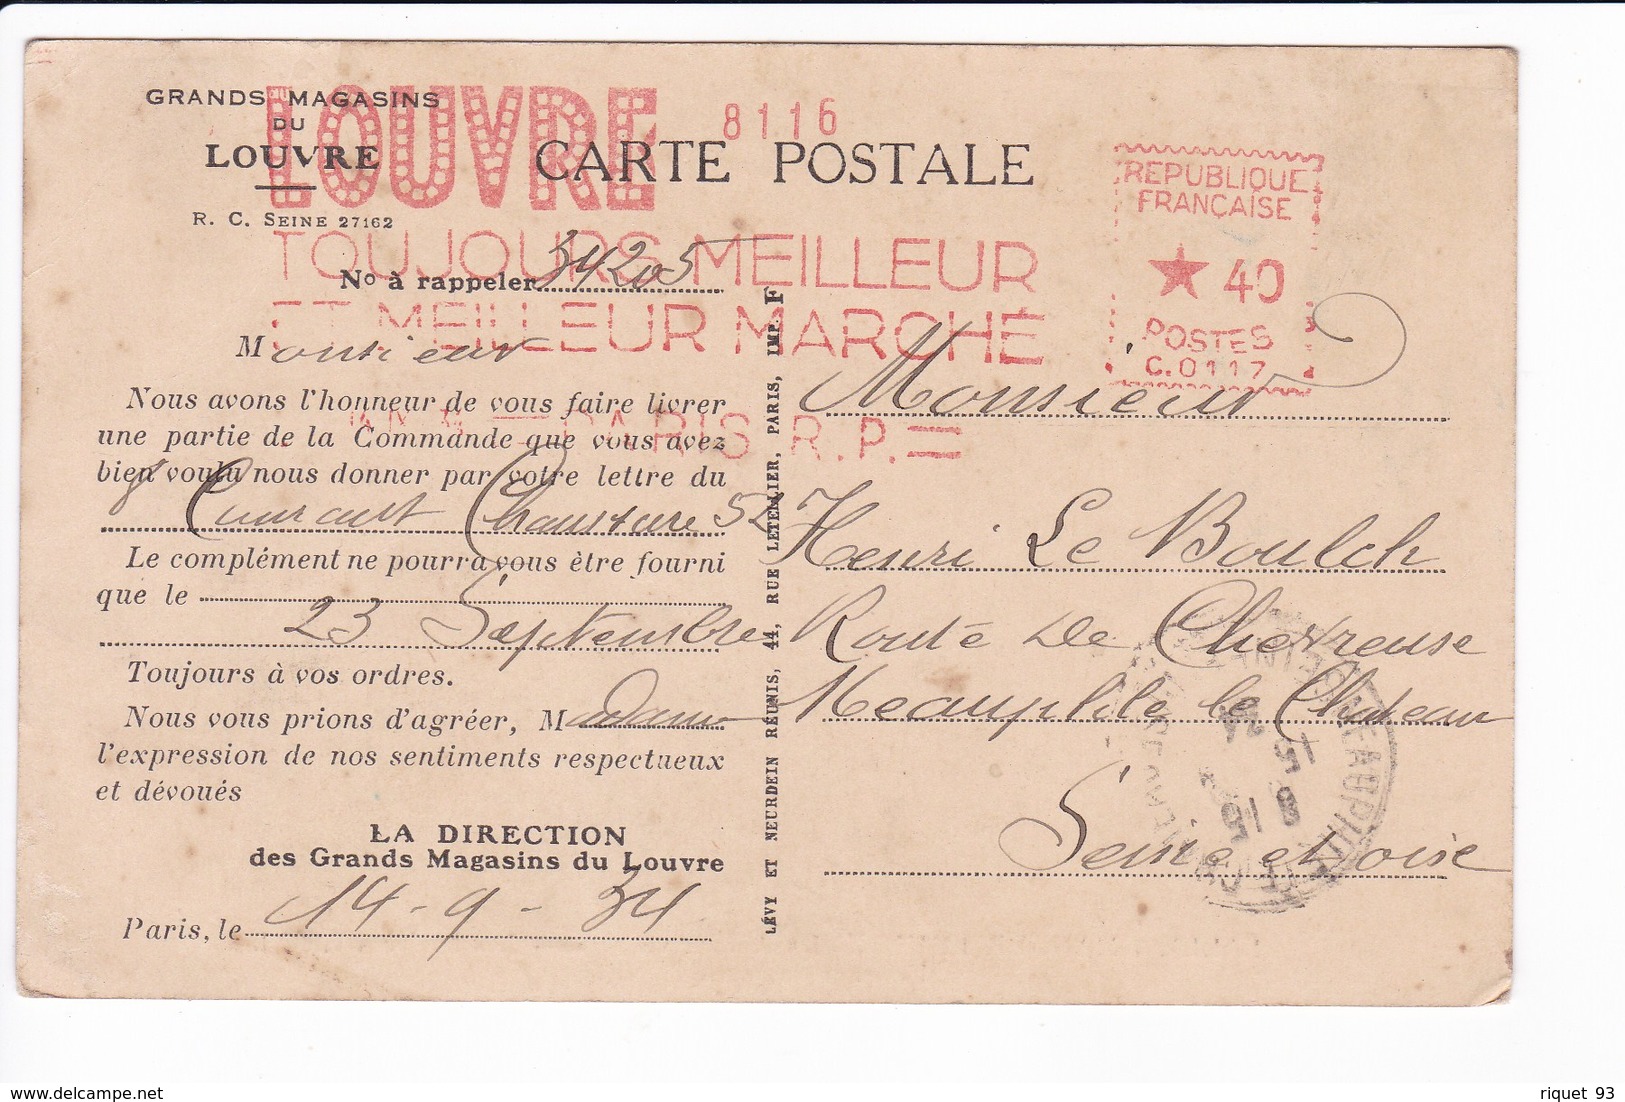 GRANDS MAGASINS
DU
LOUVRE
R. C. SEINE 27162
AU LOUVRE
TOUJOURS MEILLEUR
ET MEILLEUR MARCHÉ
PARIS R.P.
8116
CARTE POSTALE
RÉPUBLIQUE
FRANÇAISE
★ 40
POSTES
C.0117
No à rappeler 34205
Monsieur
Nous avons l'honneur de vous faire livrer
une partie de la Commande que vous avez
bien voulu nous donner par votre lettre du
8 Courant Chaussure 52
Le complément ne pourra vous être fourni
que le
23 Septembre
Toujours à vos ordres.
Nous vous prions d'agréer, Madame
l'expression de nos sentiments respectueux
et dévoués
LA DIRECTION
des Grands Magasins du Louvre
Paris, le 14-9-34
LÉVY ET NEURDEIN RÉUNIS, 44, RUE LETELLIER, PARIS, IMP. F
Monsieur
Henri Le Boulch
Route De Chevreuse
Neauphle le Chateau
Seine et oise
15
8 15
riquet 93